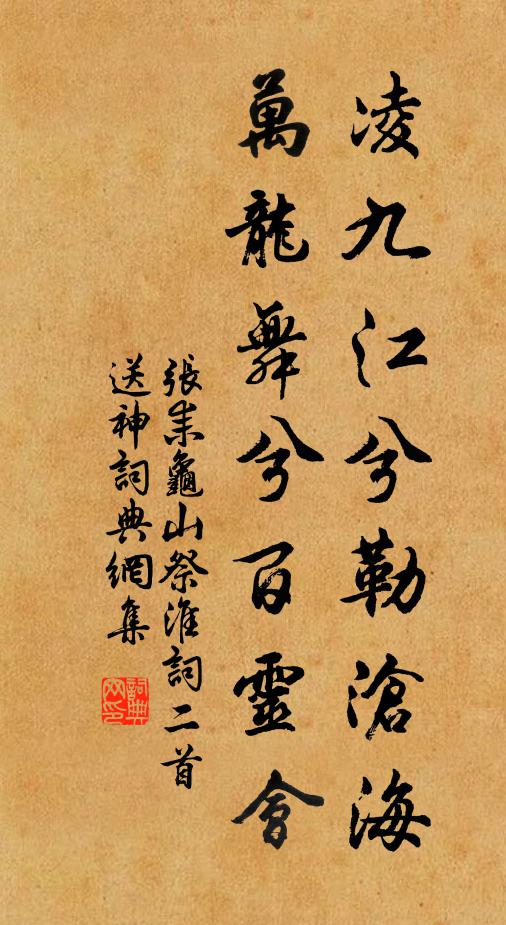 凌九江兮勒滄海
萬龍舞兮百靈會
張耒龜山祭淮詞二首
送神詞典網集
詞典
网印